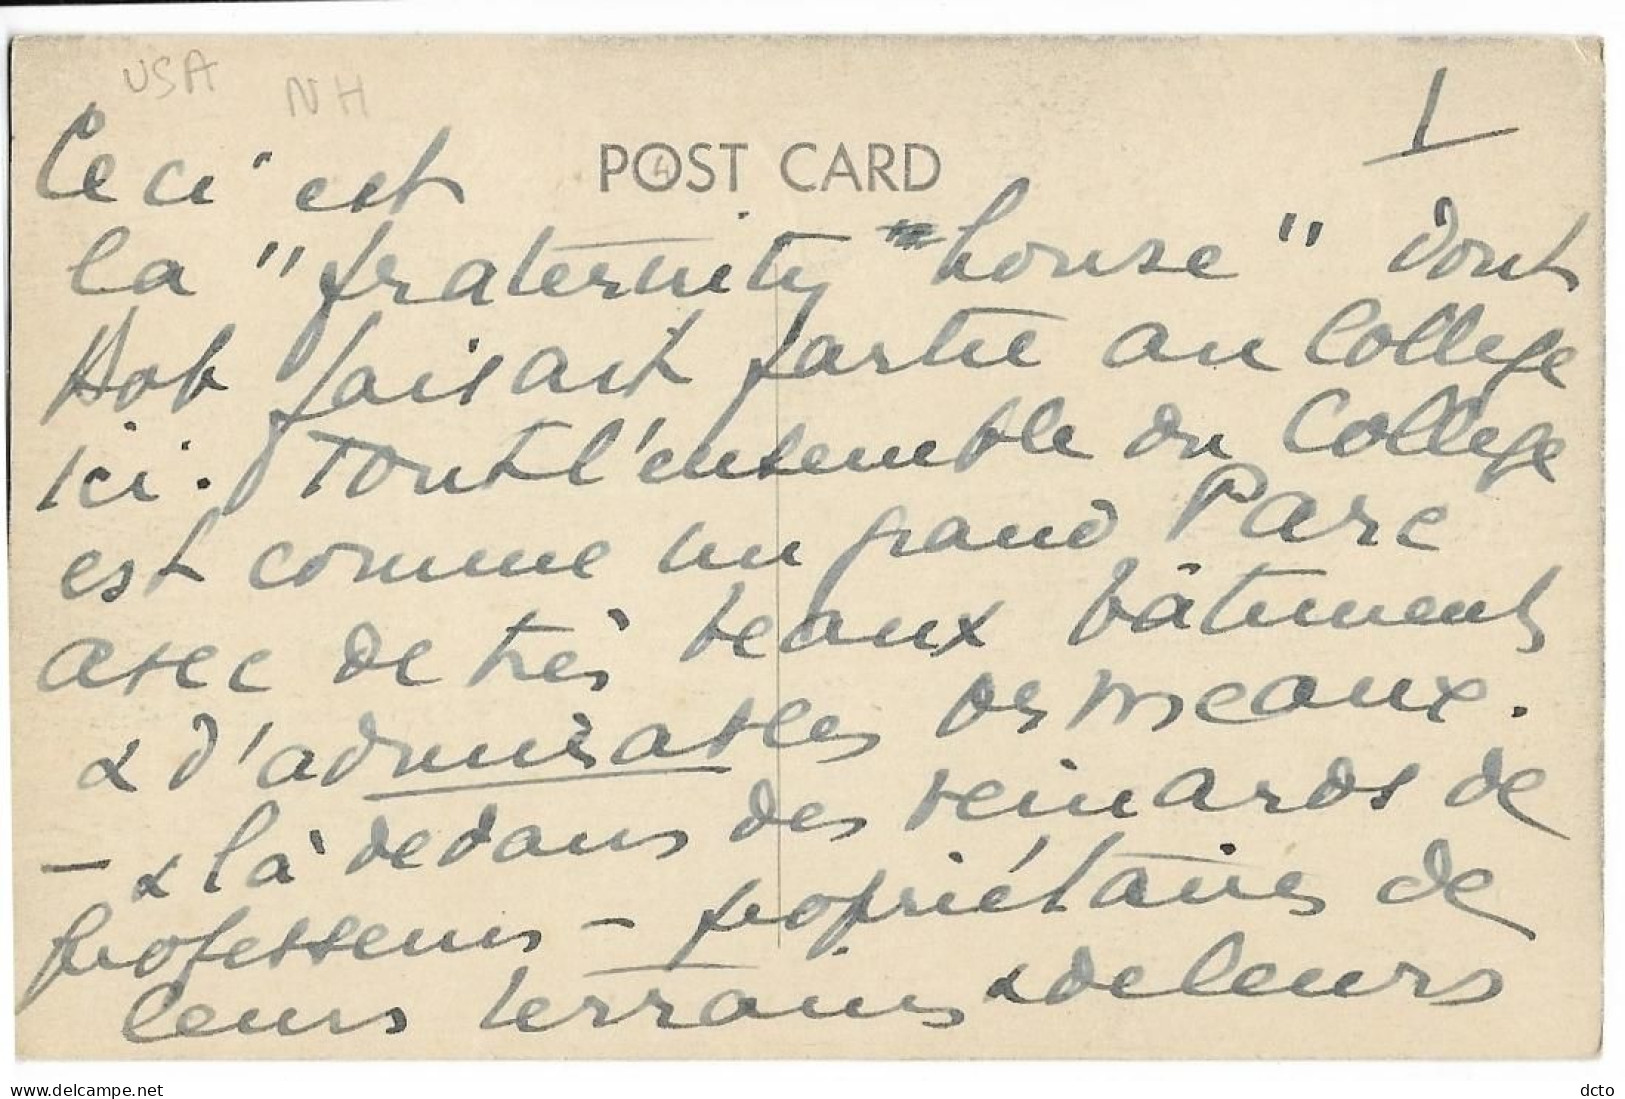 USA NH
POST CARD
1
Ceci est
la "fraternity house" dont
Hob faisait partie au College
ici. Tout l'ensemble du College
est comme un grand Parc
avec de très beaux bâtiments
& d'admirables ormeaux.
— & là dedans des veinards de
professeurs — propriétaires de
leurs terrains & de leurs
delcampe.net
dcto